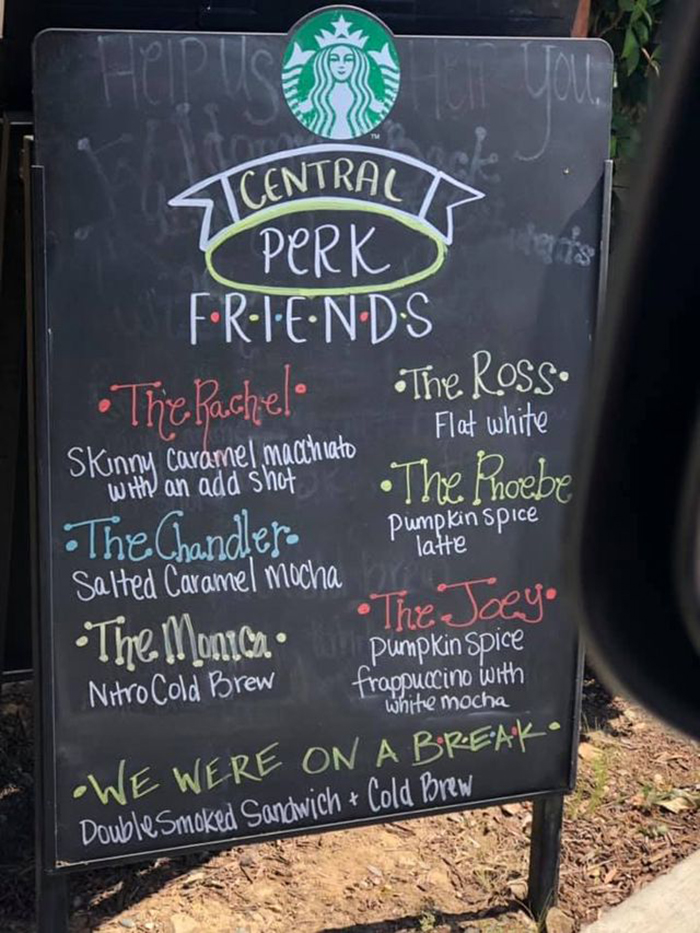 Help Us Help You
CENTRAL
PERK
F·R·I·E·N·D·S
·The Rachel·
Skinny caramel macchiato
with an add shot
·The Chandler·
Salted Caramel Mocha
·The Monica·
Nitro Cold Brew
·The Ross·
Flat white
·The Phoebe
Pumpkin spice
latte
·The Joey·
Pumpkin spice
frappuccino with
white mocha
·WE WERE ON A B·R·E·A·K·
Double Smoked Sandwich + Cold Brew